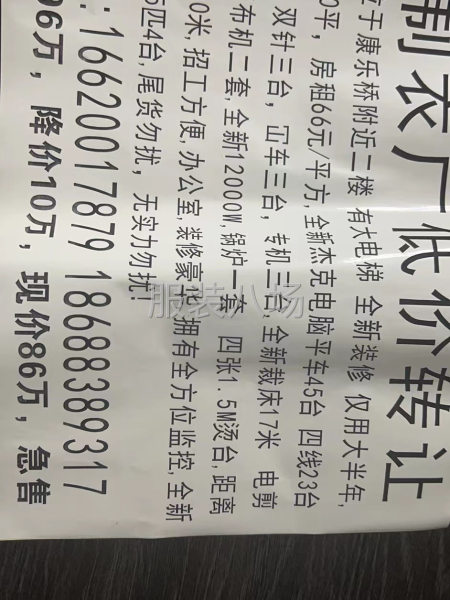 制衣厂低价转让
于康乐桥附近二楼 有大电梯 全新装修 仅用大半年,
0平,房租66元/平方,全新杰克电脑平车45台 四线23台
双针三台, 冚车三台, 专机三台 全新裁床17米 电剪
布机二套,全新12000W,锅炉一套 四张1.5M烫台,距离
0米,招工方便,办公室,装修豪华,拥有全方位监控,全新
5匹4台,尾货勿扰, 无实力勿扰!
:16620017879 18688389317
96万,降价10万,现价86万,急售
服装八场